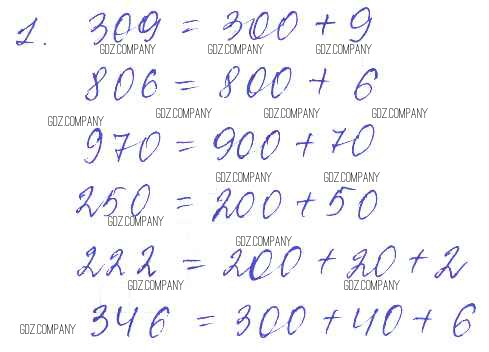 1. 309 = 300 + 9
GDZ.COMPANY GDZ.COMPANY GDZ.COMPANY
806 = 800 + 6
GDZ.COMPANY GDZ.COMPANY GDZ.COMPANY
GDZ.COMPANY
970 = 900 + 70
GDZ.COMPANY GDZ.COMPANY
250 = 200 + 50
GDZ.COMPANY
GDZ.COMPANY
222 = 200 + 20 + 2
GDZ.COMPANY GDZ.COMPANY
346 = 300 + 40 + 6
GDZ.COMPANY